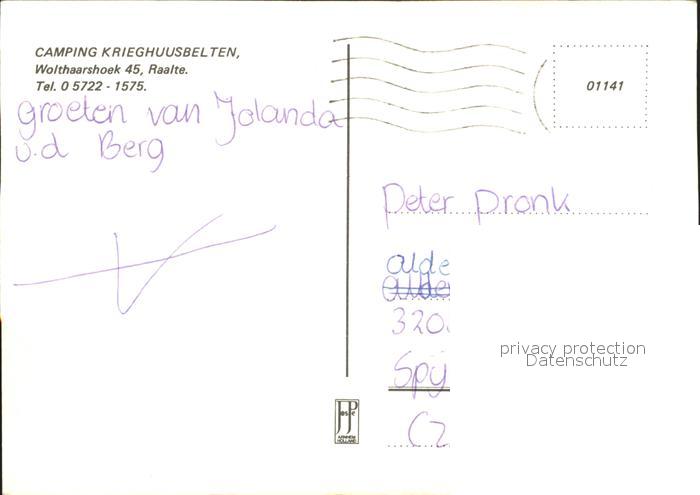 CAMPING KRIEGHUUSBELTEN,
Wolthaarshoek 45, Raalte.
Tel. 0 5722 - 1575.
groeten van Jolanda
v.d Berg
01141
Peter Pronk
alde
alde
320
Spij
(Z
privacy protection
Datenschutz
JosPé
ARNHEM
HOLLAND